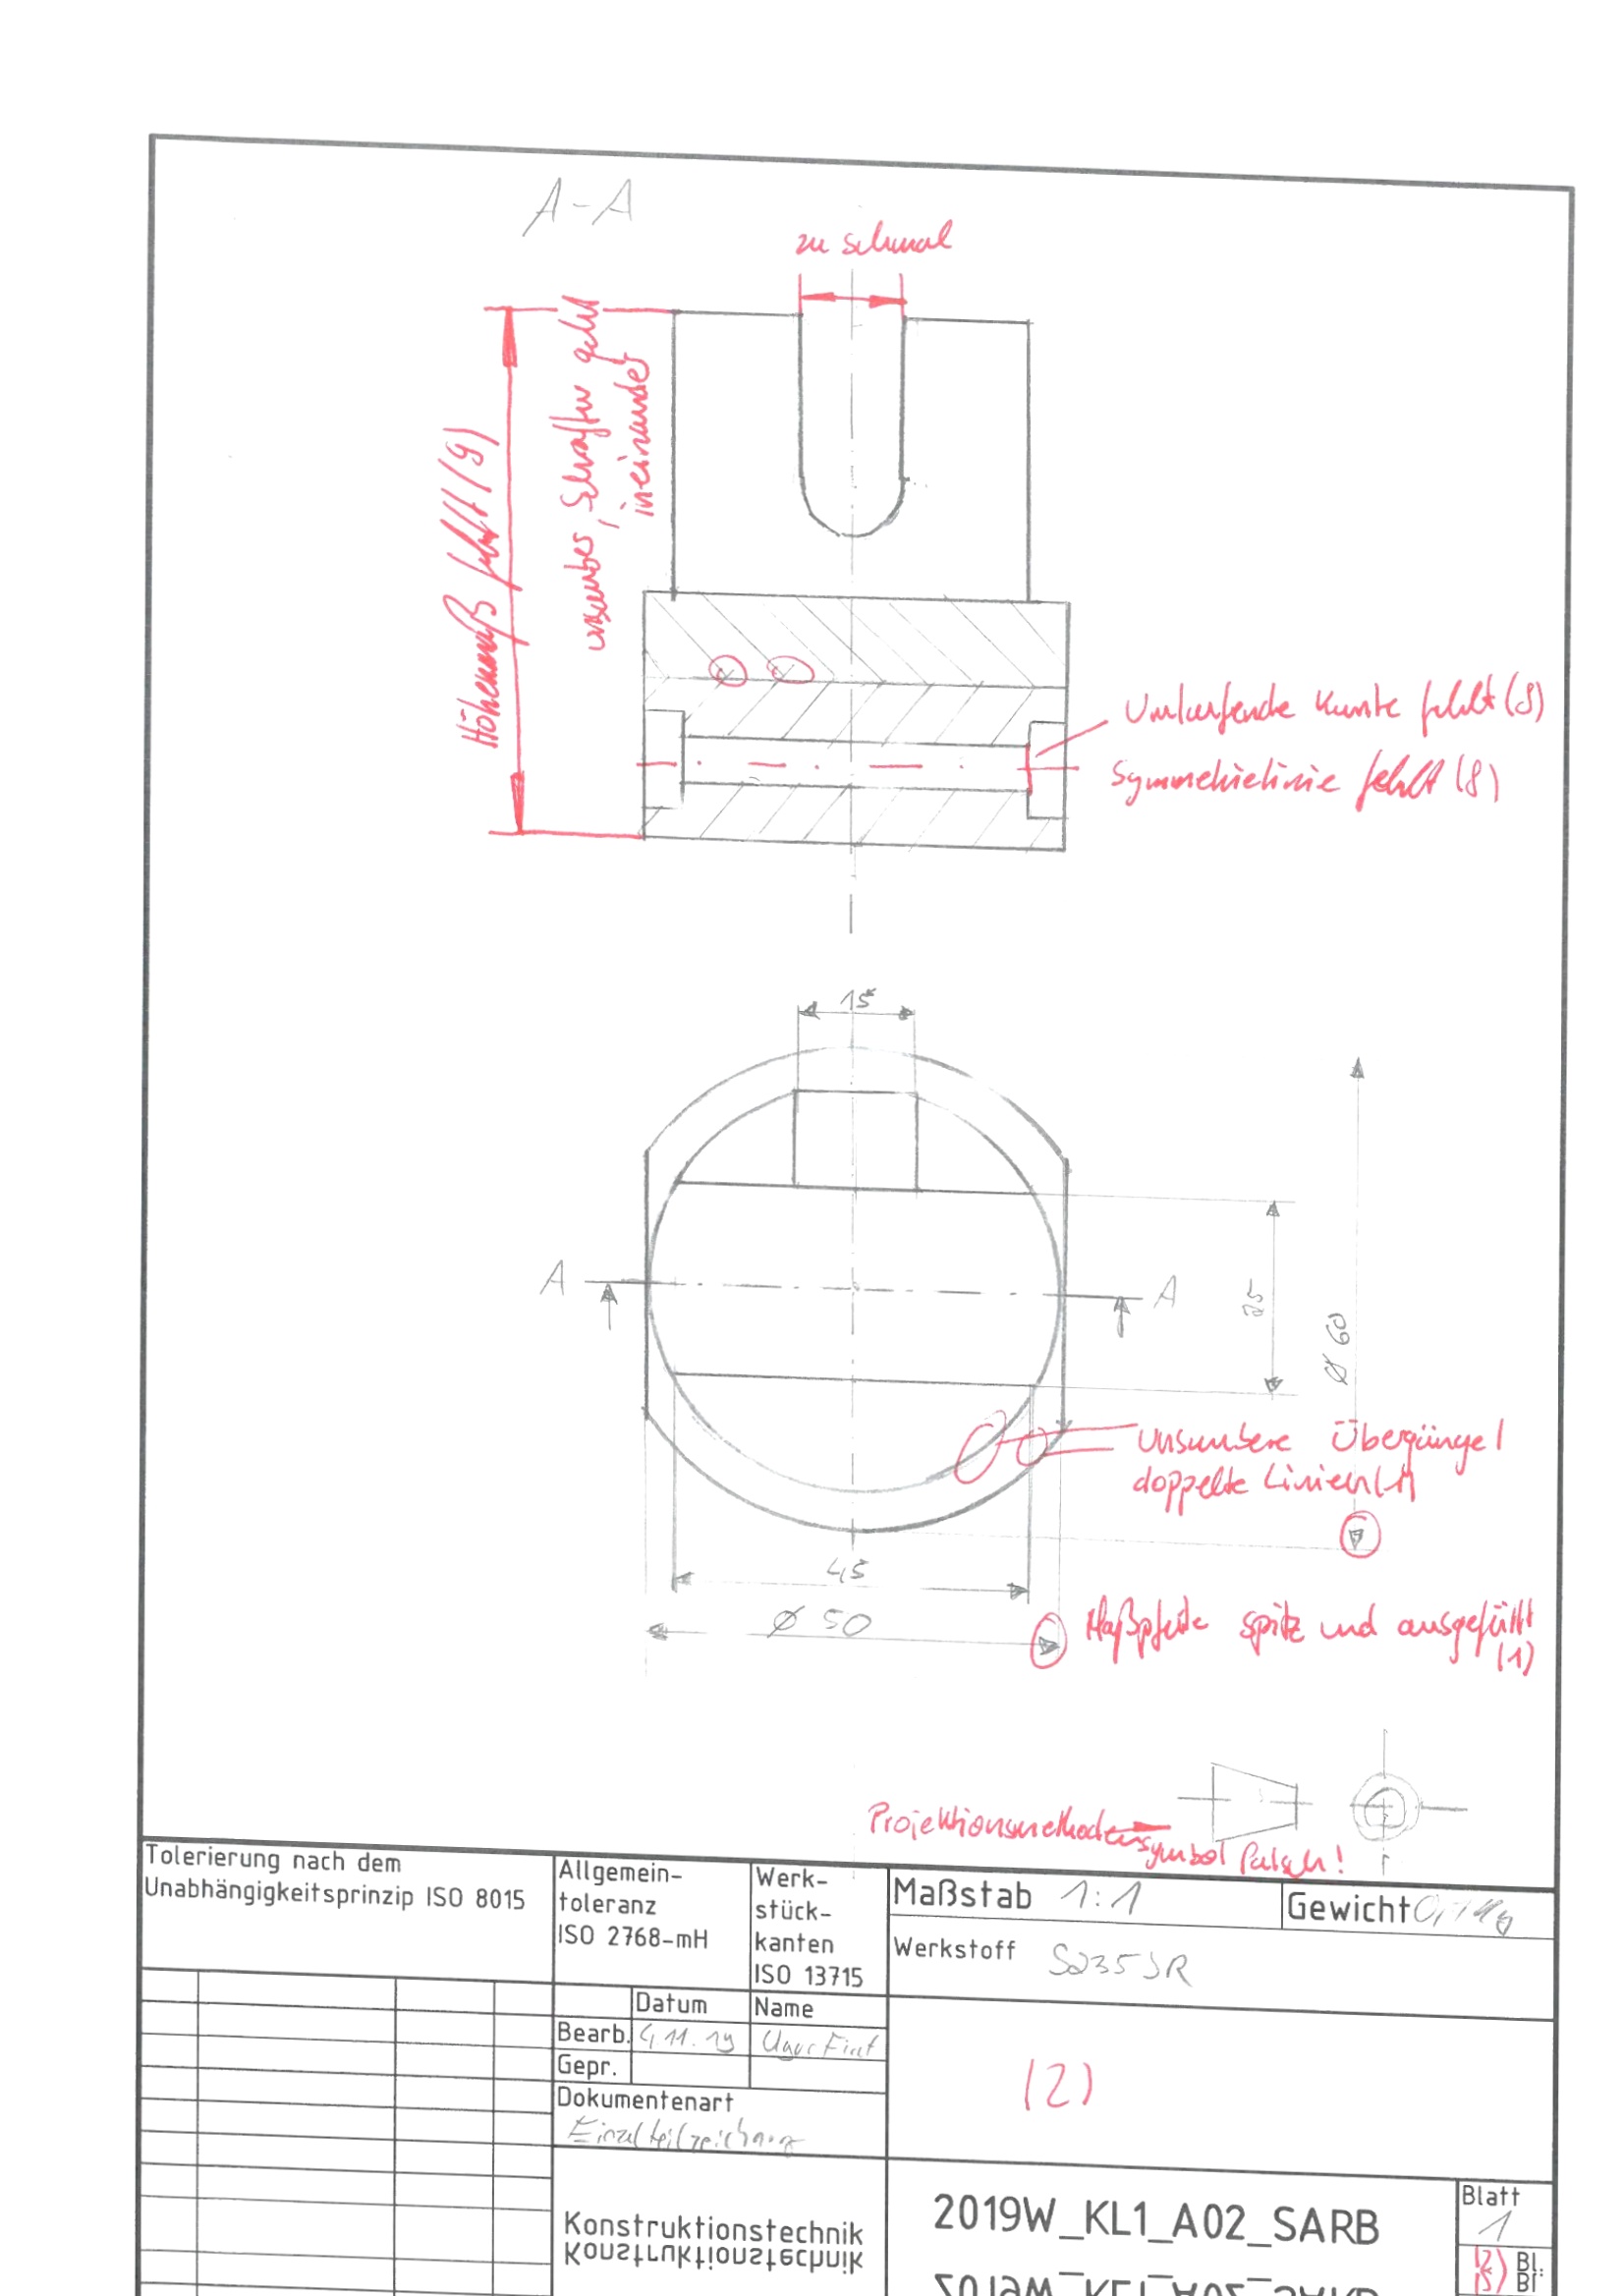 A-A
zu schmal
Höhenmaß fehlt (9)
unsauber, Schraffur geht
ineinander
Umlaufende Kante fehlt (8)
Symmetrielinie fehlt (8)
15
A
A
25
Ø 60
Unsaubere Übergänge /
doppelte Linien (1)
45
Ø 50
Maßpfeile spitz und ausgefüllt
(1)
Projektionsmethoden-
symbol falsch!
Tolerierung nach dem
Unabhängigkeitsprinzip ISO 8015
Allgemein-
toleranz
ISO 2768-mH
Werk-
stück-
kanten
ISO 13715
Maßstab 1:1
Gewicht
Werkstoff S235JR
Datum
Name
Bearb. 4.11.19 Ugur Firat
Gepr.
Dokumentenart
Einzelteilzeichnung
(2)
Konstruktionstechnik
2019W_KL1_A02_SARB
Blatt
1
Bl.